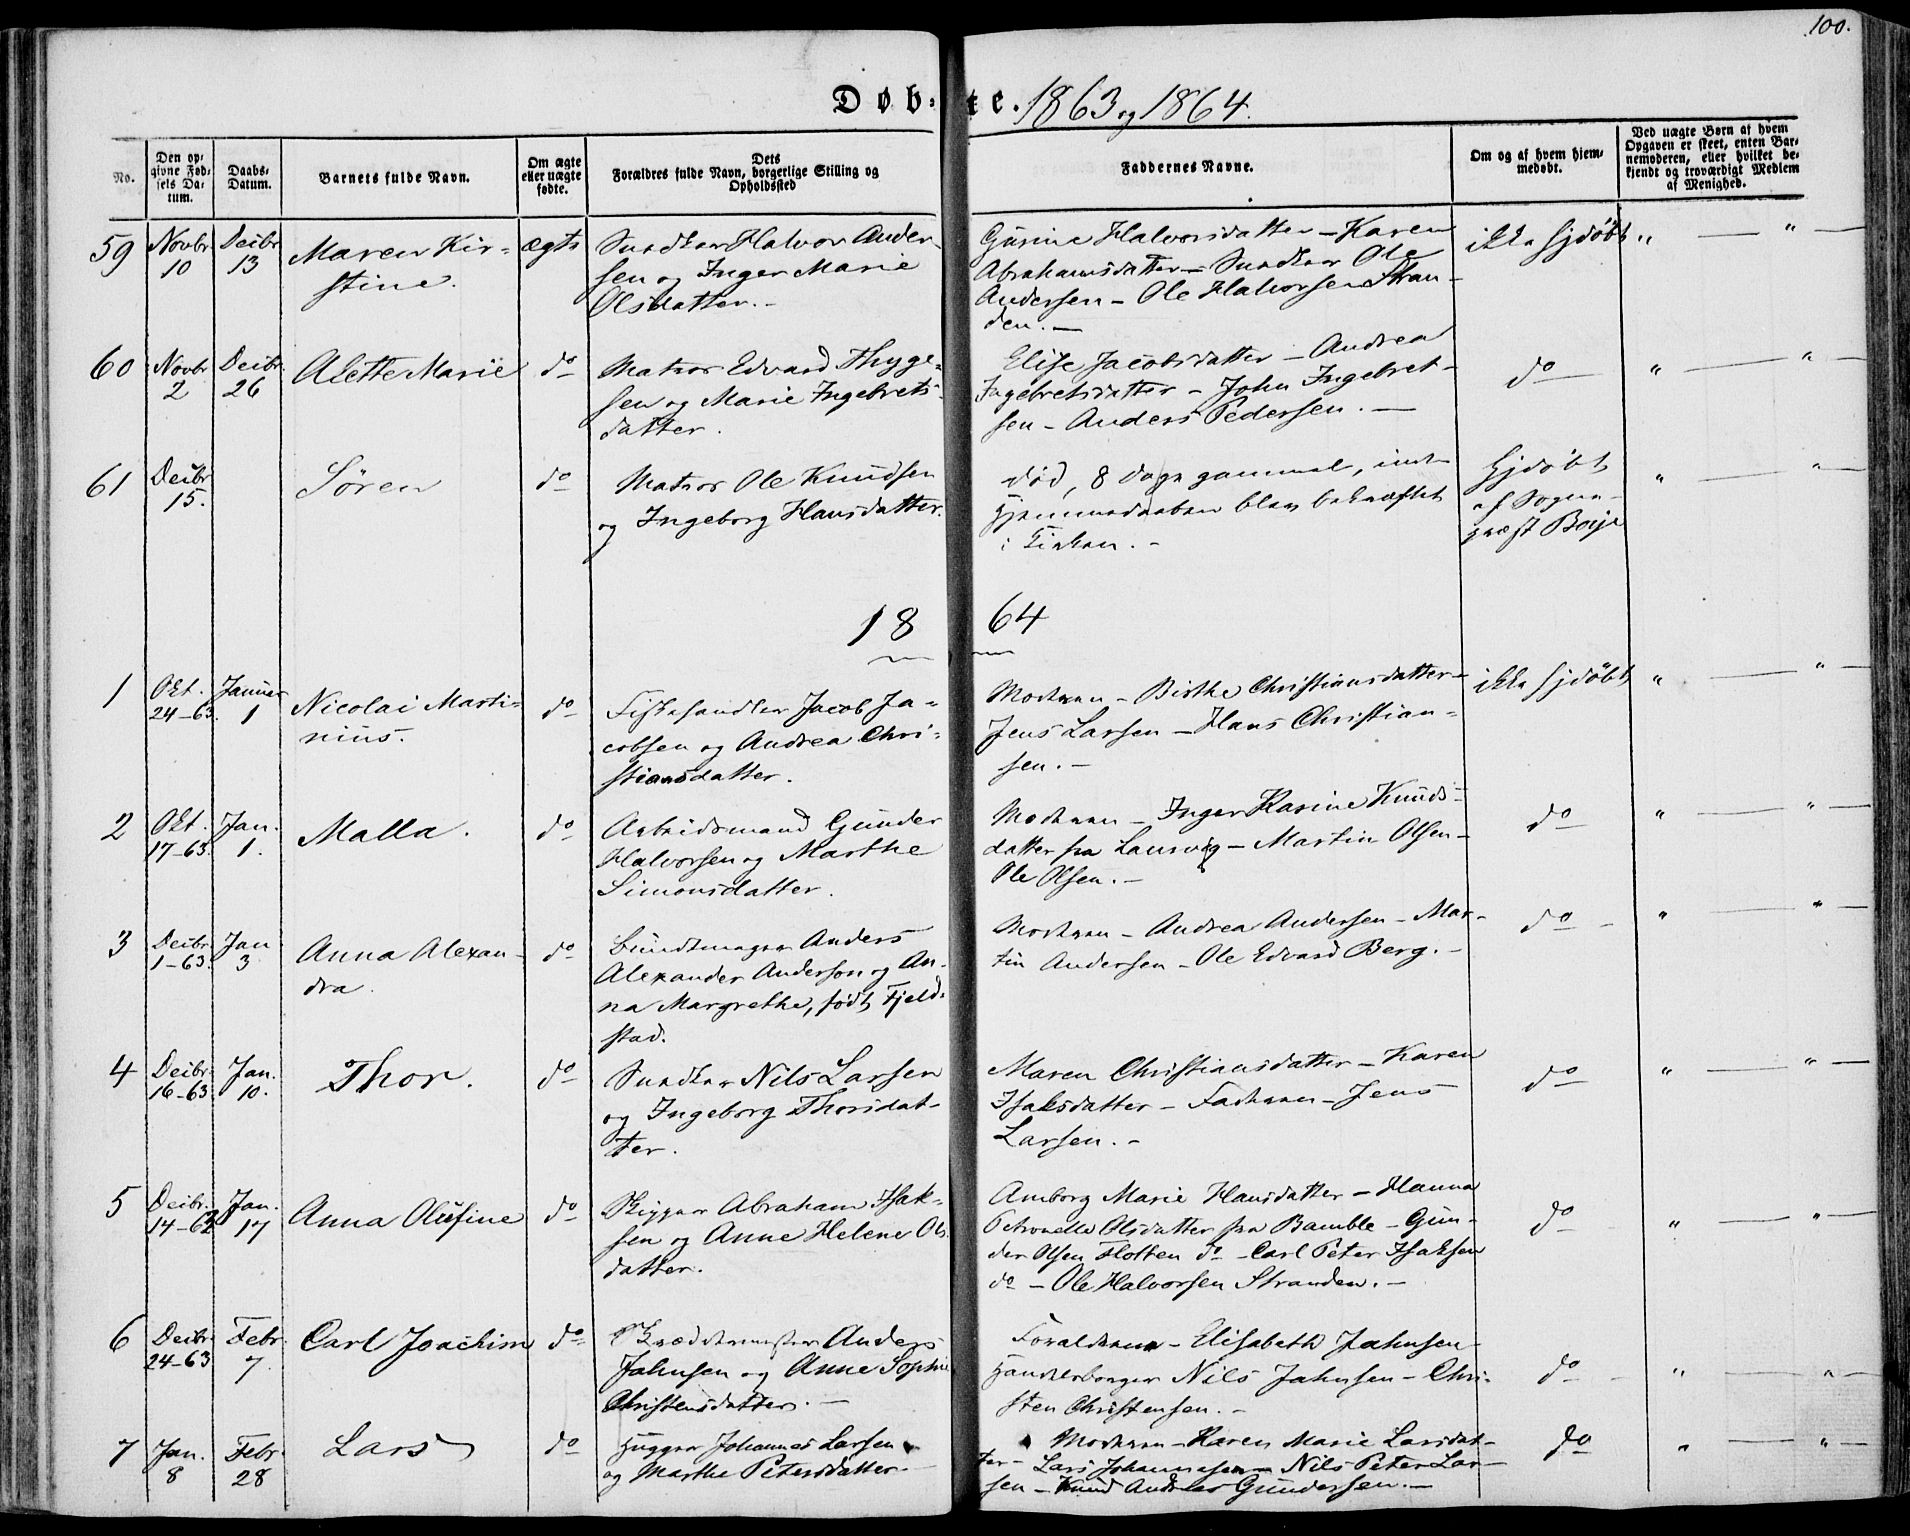 100.
Døb- te. 1863 og 1864.
No.
Den op-
givne Fød-
sels Da-
tum.
Daabs-
Datum.
Barnets fulde Navn.
Om ægte
eller uægte
fødte.
Dets
Forældres fulde Navn, borgerlige Stilling og
Opholdssted
Faddernes Navne.
Om og af hvem hjem-
medøbt.
Ved uægte Børn af hvem
Opgaven er skeet, enten Bar-
nemoderen, eller hvilket be-
kjendt og troværdigt Medlem
af Menighed.
59
Novbr.
10
Decbr
13
Maren Kir-
stine.
ægte
Snedker Halvor Ander-
sen og Inger Marie
Olsdatter.-
Gurine Halvorsdatter - Karen
Abrahamsdatter - Snedker Ole
Andersen - Ole Halvorsen Stran-
den.-
ikke hjdøbt
" — " —
60
Novbr
2
Decbr.
26
Alette Marie
do
Matros Edvard Thyge-
sen og Marie Ingebrets-
datter.
Elise Jacobsdatter - Andrea
Ingebretsdatter - John Ingebret-
sen - Anders Pedersen.-
do
" — " —
61
Decbr
15.
Søren
do
Matros Ole Knudsen
og Ingeborg Hansdatter.
død, 8 dage gammel, inden
Hjemmedaaben blev bekræftet
i Kirken.-
Hjdøbt
af Sogne-
præst Boije
" — " —
18 64
1
Okt.
24-63.
Januar
1
Nicolai Marti-
nius.
do
Fiskehandler Jacob Ja-
cobsen og Andrea Chri-
stiansdatter.
Moderen - Birthe Christiansdatter-
Jens Larsen - Hans Christian-
sen.-
ikke hjdøbt
" — " —
2
Okt.
17-63.
Jan.
1.
Malla.
do
Arbeidsmand Gunder
Halvorsen og Marthe
Simonsdatter.
Moderen - Inger Karine Knuds-
datter fra Laurvig - Martin Olsen-
Ole Olsen.-
do
" — " —
3
Decbr.
1-63.
Jan
3
Anna Alexan-
dra.
do
Bundtmager Anders
Alexander Anderson og An-
na Margrethe, født Fjeld-
stad.
Moderen - Andrea Andersen - Mar-
tin Andersen - Ole Edvard Berg.-
do -
" — " —
4
Decbr.
16-63.
Jan.
10.
Thor.
do
Snedker Nils Larsen
og Ingeborg Thorsdat-
ter.
Maren Christiansdatter - Karen
Isaksdatter - Faderen - Jens
Larsen.-
do
" — " —
5
Decbr.
14-63
Jan.
17
Anna Olufine
do
Skipper Abraham Isak-
sen og Anne Helene Ols-
datter.
Amborg Marie Hansdatter - Hanna
Petronelle Olsdatter fra Bamble - Gun-
der Olsen Flotten do - Carl Peter Isaksen
do - Ole Halvorsen Stranden.-
do
" — " —
6
Decbr.
24-63
Febr.
7.
Carl Joachim
do
Skræddermester Anders
Jahnsen og Anne Sophie
Christensdatter.-
Forældrene - Elisabeth Jahnsen-
Handelsborger Nils Jahnsen - Chri-
sten Christensen.-
do -
" — " —
7
Jan.
8
Febr.
28
Lars
do
Hugger Johannes Larsen
og Marthe Petersdatter.-
Moderen - Karen Marie Larsdat-
ter - Lars Johannesen - Nils Peter Lar-
sen - Knud Andreas Gundersen.-
do
" — " —